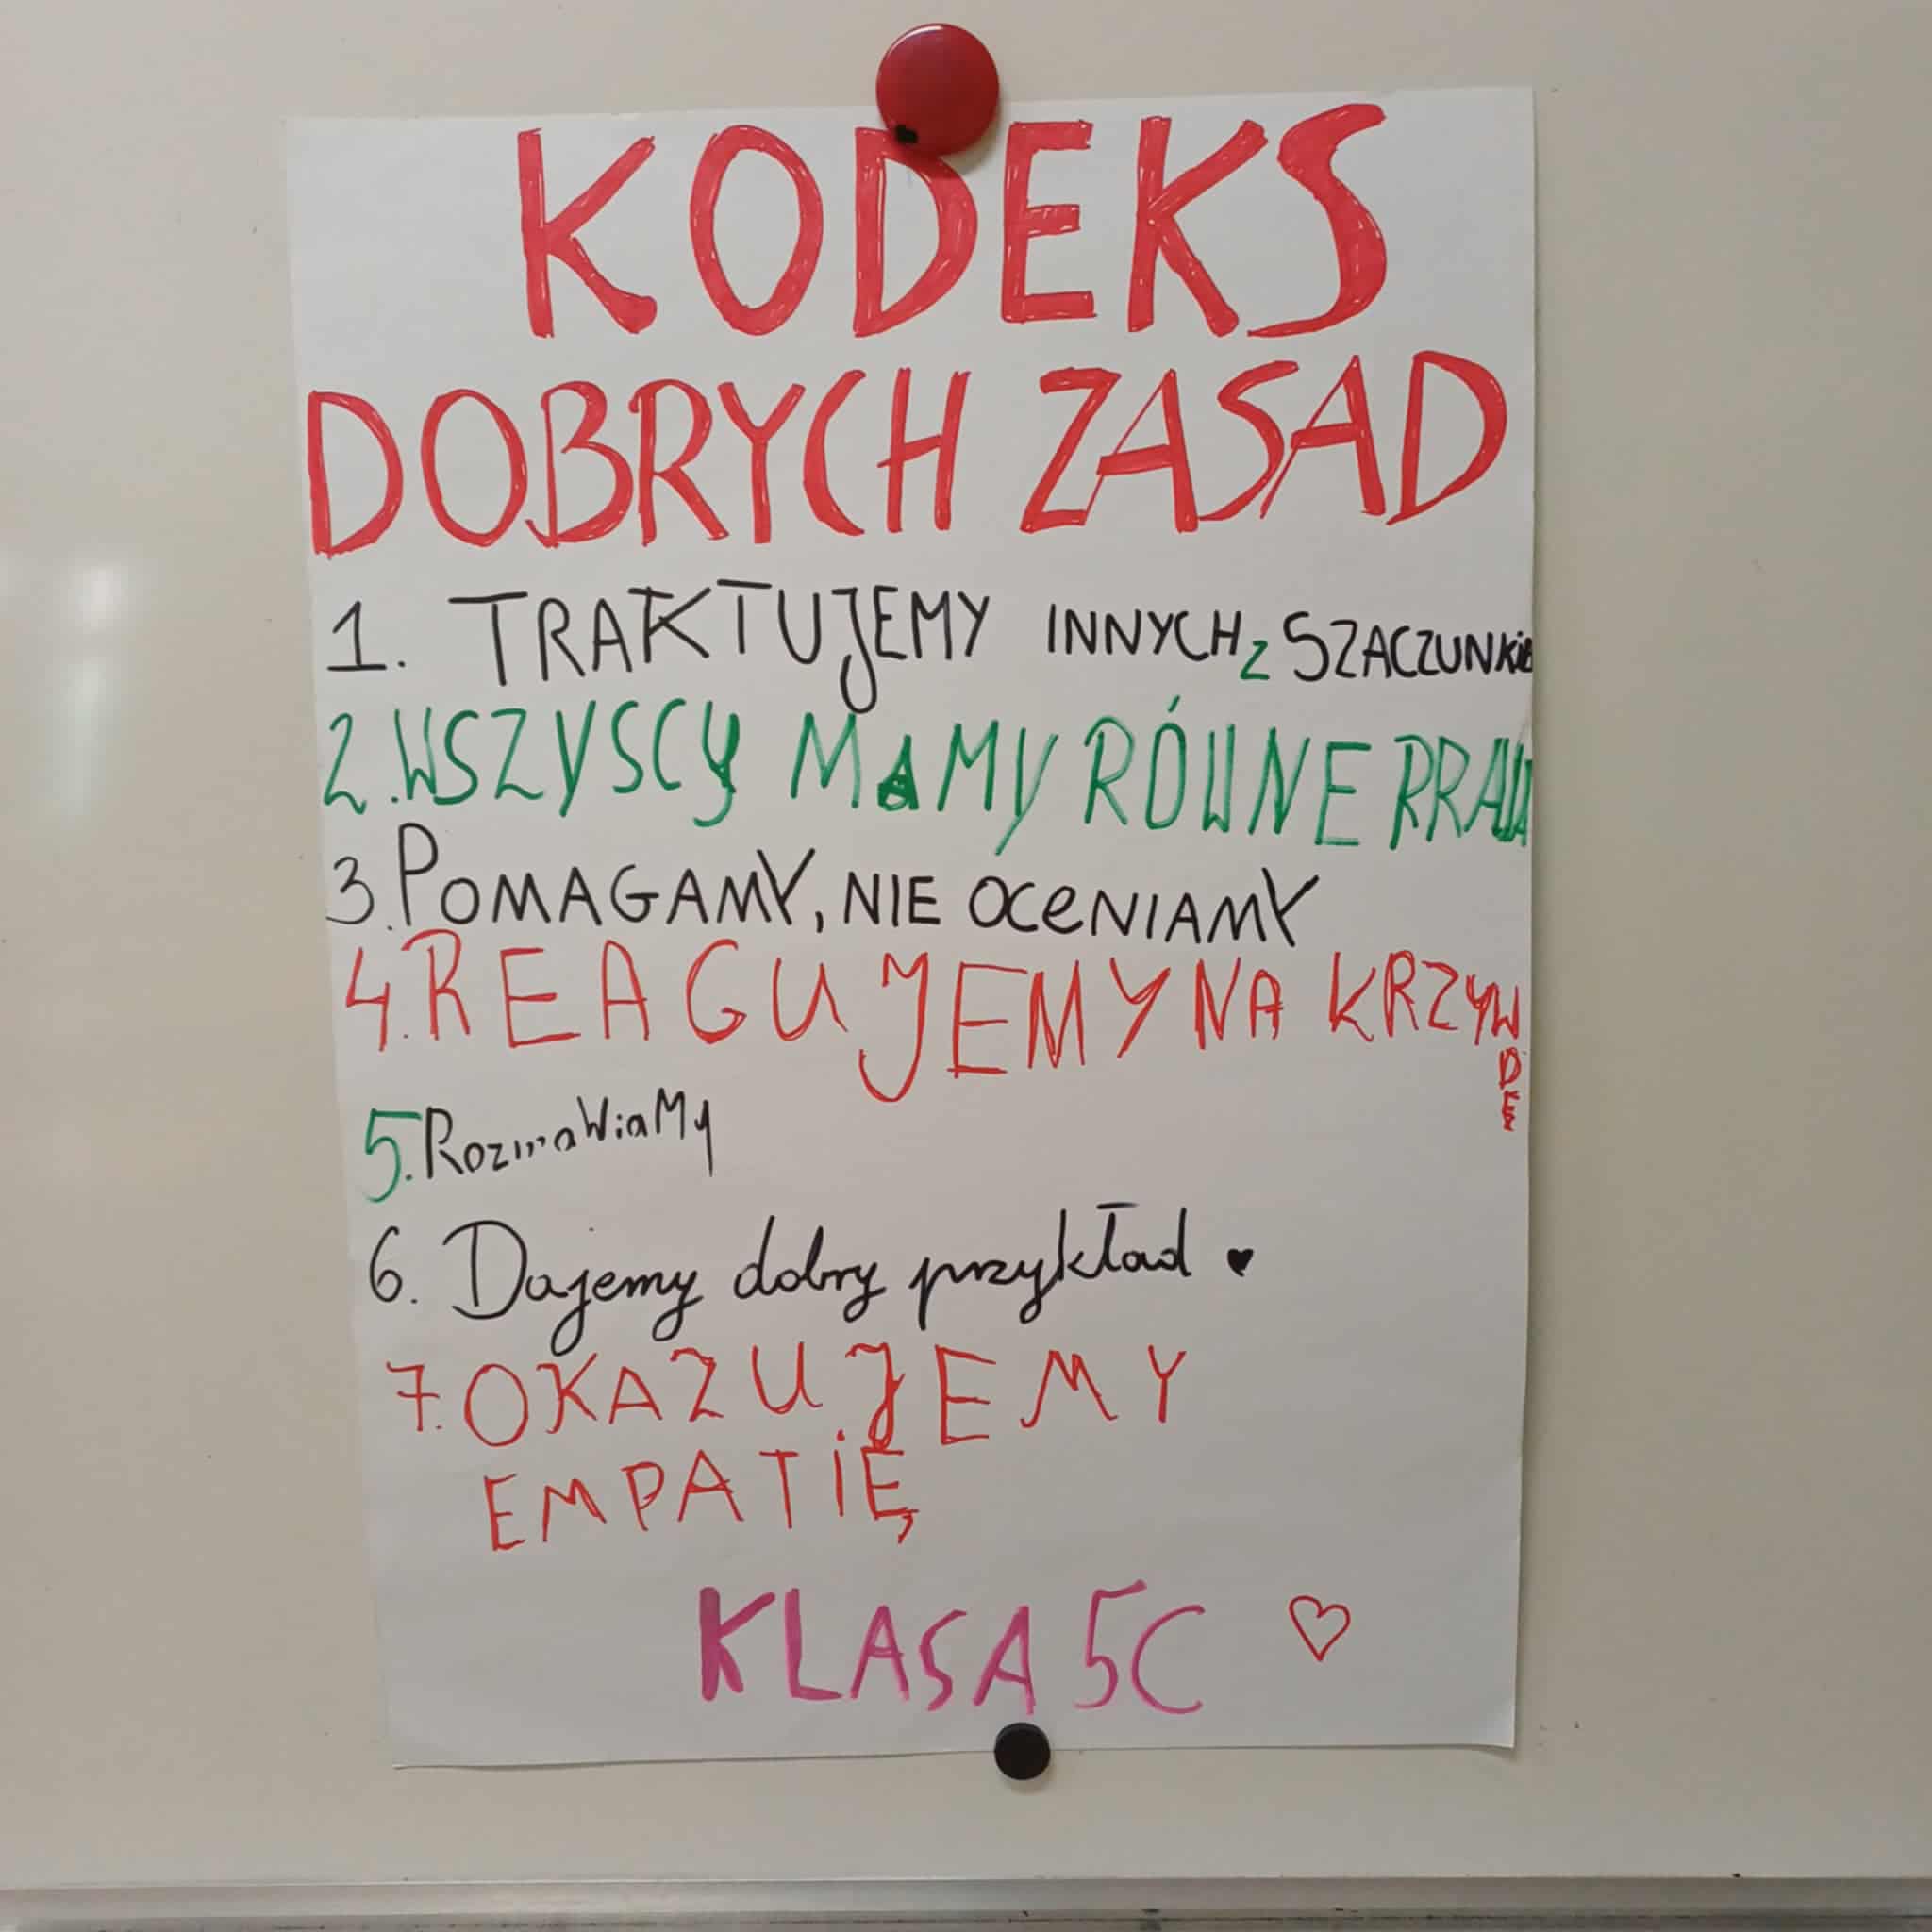 KODEKS
DOBRYCH ZASAD
1. TRAKTUJEMY INNYCH Z SZACZUNKIE
2. WSZYSCY MAMY RÓWNE PRAWA
3. POMAGAMY, NIE OCENIAMY
4. REAGUJEMY NA KRZYW
DĘ
5. RozmaWiaMy
6. Dajemy dobry przykład
7. OKAZUJEMY
EMPATIĘ
KLASA 5C